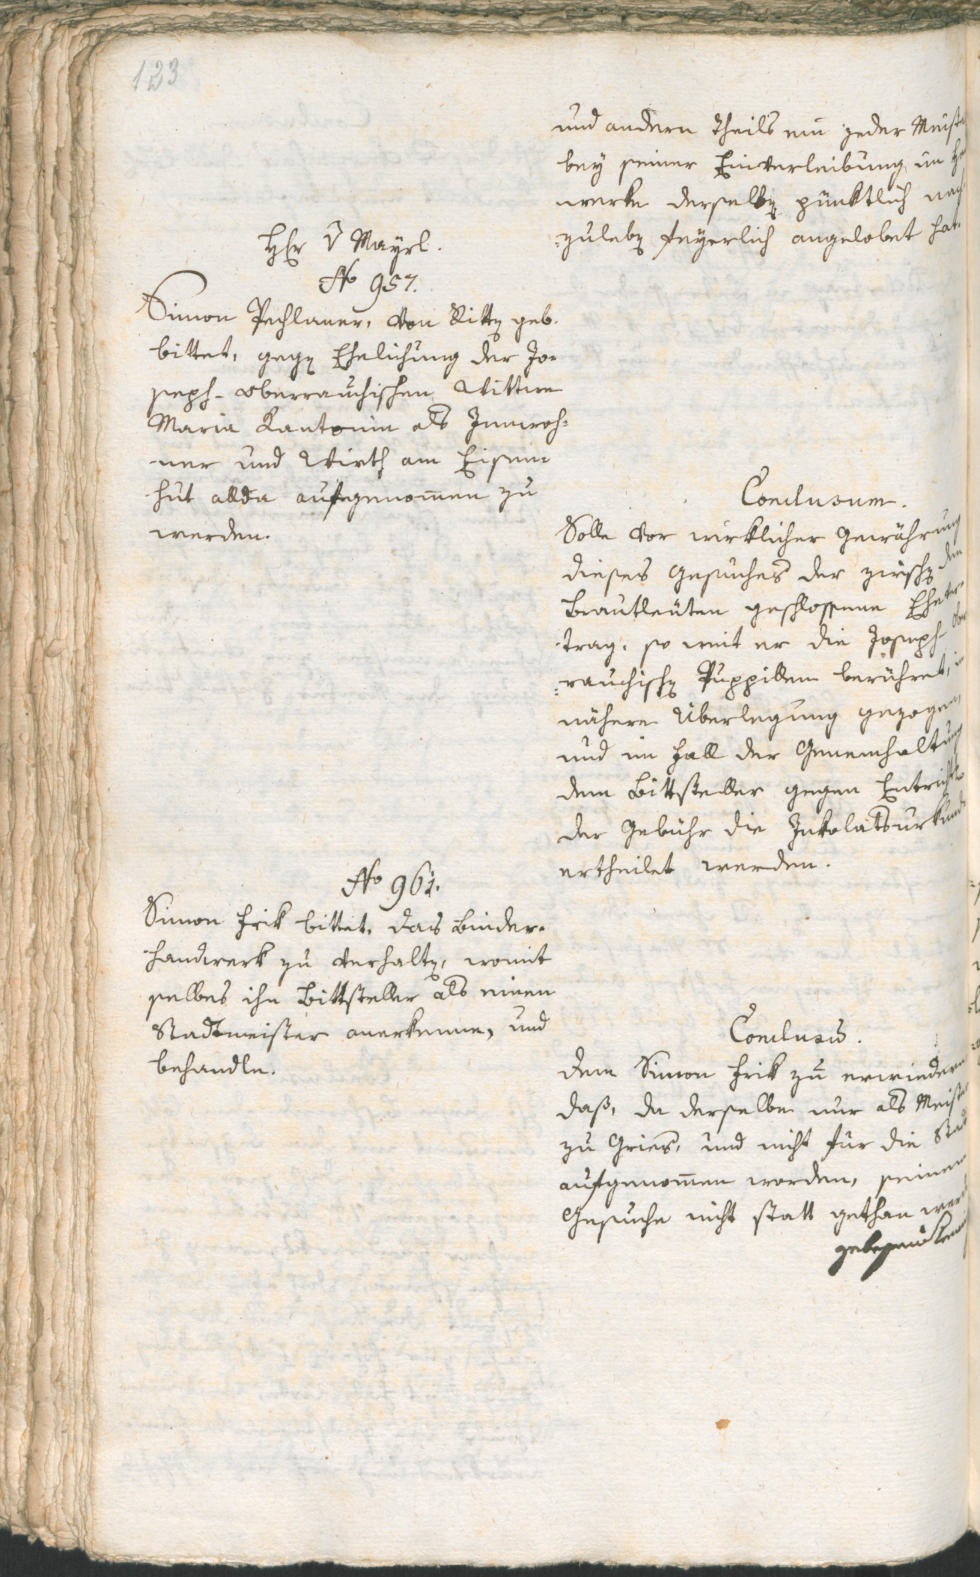 123
und andern Theils ein jeder Meiste
bey seiner Einverleibung im H
werke derselbẽ pünktlich nach
zulebẽ feyerlich angelobet hat.
HE v Mayrl.
No 957.
Simon Pechlaner, von Rittẽ geb.
bittet, gegẽ Ehelichung der Jo-
seph-Oberrauchischen Wittwe
Maria als Innwoh-
ner und Wirth am Eisen-
hut allda aufgenom̅en zu
werden.
Conclusum.
Solle vor wirklicher Gewährung
dieses Gesuches der zwischẽ den
Brautleuten geschlossene Ehever-
trag, so weit er die Joseph-Ober
rauchischẽ Puppillen berühret, in
nähere Überlegung gezogen,
und im Fall der Genemhaltung
dem Bittsteller gegen Entricht
der Gebühr die Inkolatsurkunde
ertheilet werden.
No 961.
Simon Frik bittet, das Binder-
handwerk zu verhaltẽ, womit
selbes ihn Bittsteller als einen
Stadtmeister anerkenne, und
behandle.
Conclusũ.
Dem Simon Frik zu erwiedern
daß, da derselbe nur als Meiste
zu Gries, und nicht für die Stad
aufgenom̅en worden, seinem
Gesuche nicht statt gethan werd